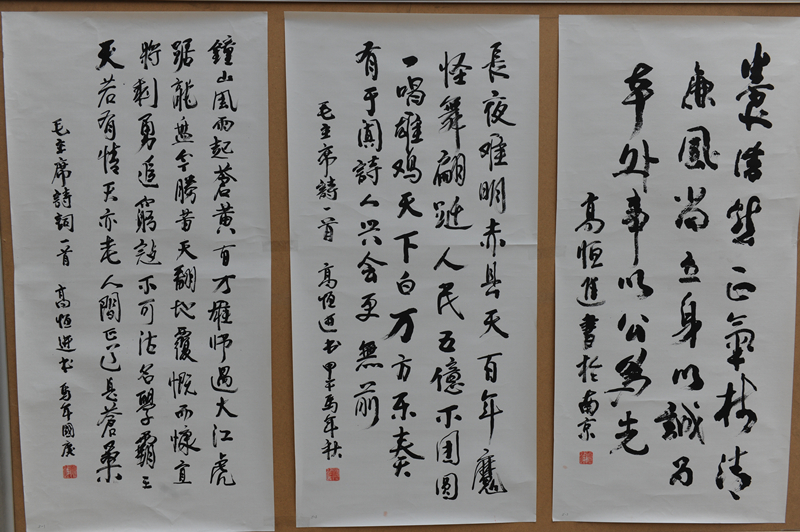 養浩然正氣樹清
廉風尚立身以誠為
本处事以公為先
高恒進書於南京
長夜难明赤县天百年魔
怪舞翩跹人民五億不团圆
一唱雄鸡天下白万方乐奏
有于阗詩人兴会更無前
毛主席詩一首 高恒进书甲午馬年秋
鐘山風雨起蒼黄百万雄师过大江虎
踞龍盘今勝昔天翻地覆慨而慷宜
将剩勇追窮寇不可沽名學霸王
天若有情天亦老人間正道是蒼桑
毛主席詩詞一首 高恒进书 馬年國庆